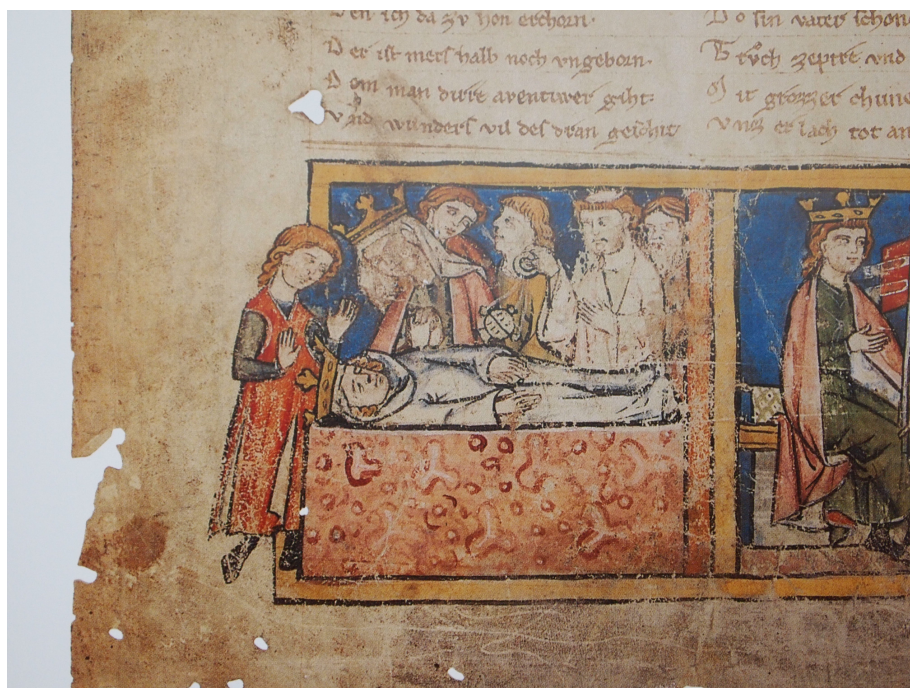 Den ich da zv hon erchorn·
Der ist mers halb noch vngeborn·
Dom man dirre aventiwer giht:
Vnd wunders vil des dran geschiht
Do sin vater schon
Trůch zepire vnd
it grozzer chune
Vnz er lach tot an